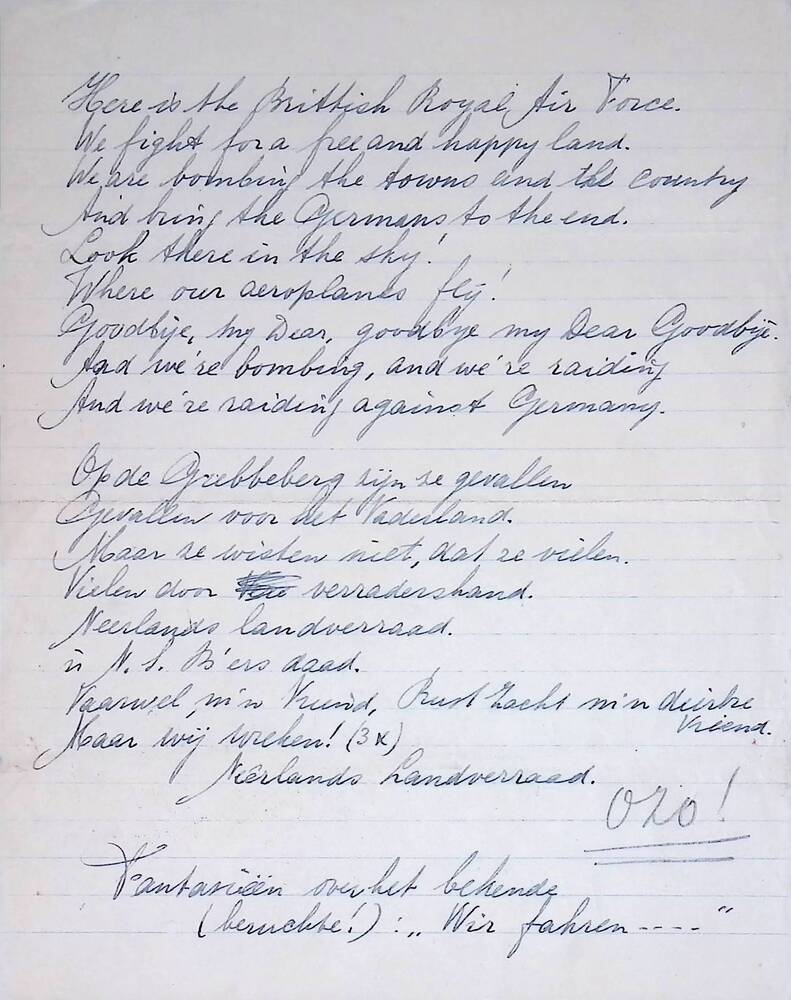 Here is the Brittish Royal Air Force.
We fight for a free and happy land.
We are bombing the towns and the country
And bring the Germans to the end.
Look there in the sky!
Where our aeroplanes fly!
Goodbije, my Dear, goodbye my Dear Goodbije.
And we're bombing, and we're raiding
And we're raiding against Germany.
Op de Grebbeberg zijn ze gevallen
Gevallen voor het Vaderland.
Maar ze wisten niet, dat ze vielen.
Vielen door verradershand.
Neerlands landverraad.
is N. S. B'ers daad.
Vaarwel, m'n Vriend, Rust Zacht m'n dierbre
Vriend.
Maar wij wreken! (3x)
Neêrlands Landverraad.
OZO!
Fantasieën over het bekende
(beruchte!) : „Wir fahren ----"